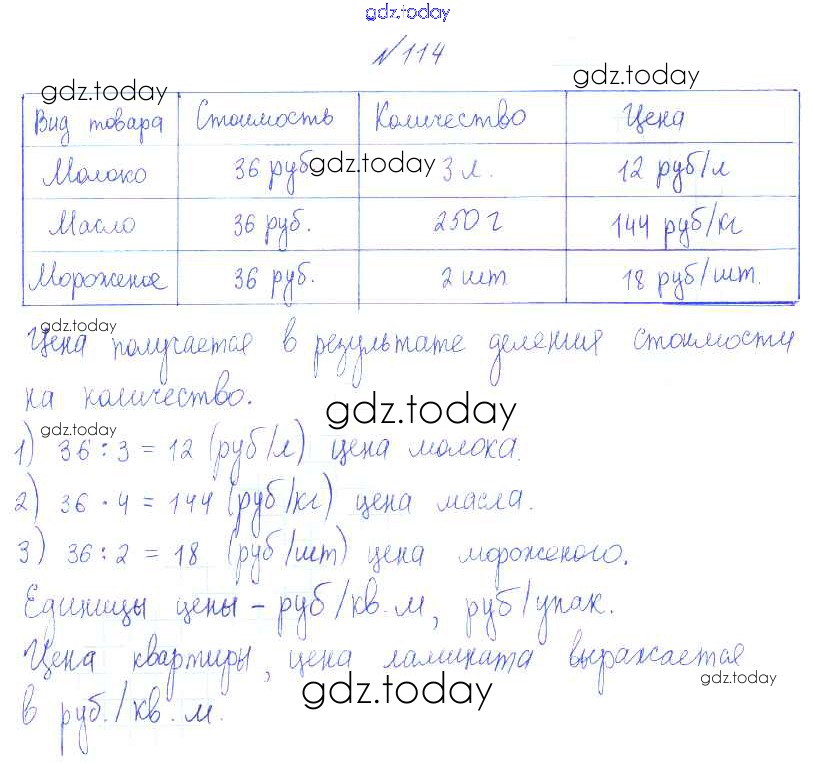 gdz.today
№114
gdz.today
gdz.today
Вид товара Стоимость Количество Цена
Молоко 36 руб. 3 л. 12 руб/л
gdz.today
Масло 36 руб. 250 г 144 руб/кг
Мороженое 36 руб. 2 шт 18 руб/шт.
gdz.today
Цена получается в результате деления стоимости
на количество.
gdz.today
gdz.today
1) 36 : 3 = 12 (руб/л) цена молока.
2) 36 · 4 = 144 (руб/кг) цена масла.
3) 36 : 2 = 18 (руб/шт) цена мороженого.
Единицы цены – руб/кв.м, руб/упак.
Цена квартиры, цена ламината выражается
gdz.today
gdz.today
в руб./кв.м.